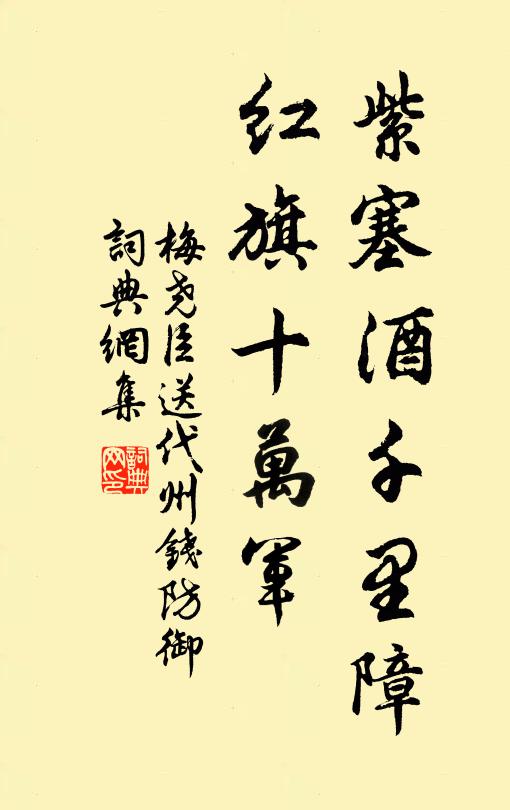 紫塞酒千里障
紅旗十萬軍
梅尧臣送代州錢防御
詞典網集
詞典網印